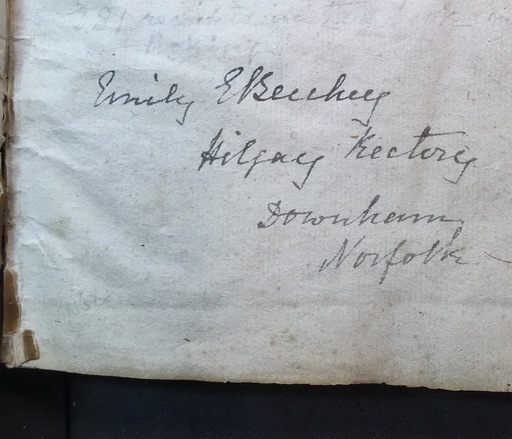 Emily E Beechey
Hilgay Rectory
Downham
Norfolk